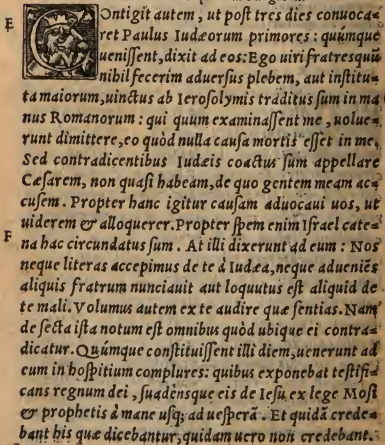 E
Contigit autem, ut post tres dies conuoca=
ret Paulus Iudæorum primores: quúmque
uenissent, dixit ad eos: Ego uiri fratres quū
nihil fecerim aduersus plebem, aut institu=
ta maiorum, uinctus ab Ierosolymis traditus sum in ma
nus Romanorum : qui quum examinassent me, uolue=
runt dimittere, eo quòd nulla causa mortis esset in me,
Sed contradicentibus Iudæis coactus sum appellare
Cæsarem, non quasi habeam, de quo gentem meam ac=
cusem. Propter hanc igitur causam aduocaui uos, ut
uiderem & alloquerer. Propter spem enim Israel cate=
F
na hac circundatus sum. At illi dixerunt ad eum : Nos
neque literas accepimus de te à Iudæa, neque adueniēs
aliquis fratrum nunciauit aut loquutus est aliquid de
te mali. Volumus autem ex te audire quæ sentias. Nam
de secta ista notum est omnibus quòd ubique ei contra=
dicatur. Quúmque constituissent illi diem, uenerunt ad
eum in hospitium complures: quibus exponebat testifi=
cans regnum dei, suadénsque eis de Iesu ex lege Mosi
& prophetis à mane usq; ad uesperā. Et quidā crede=
bant his quæ dicebantur, quidam uero non credebant.